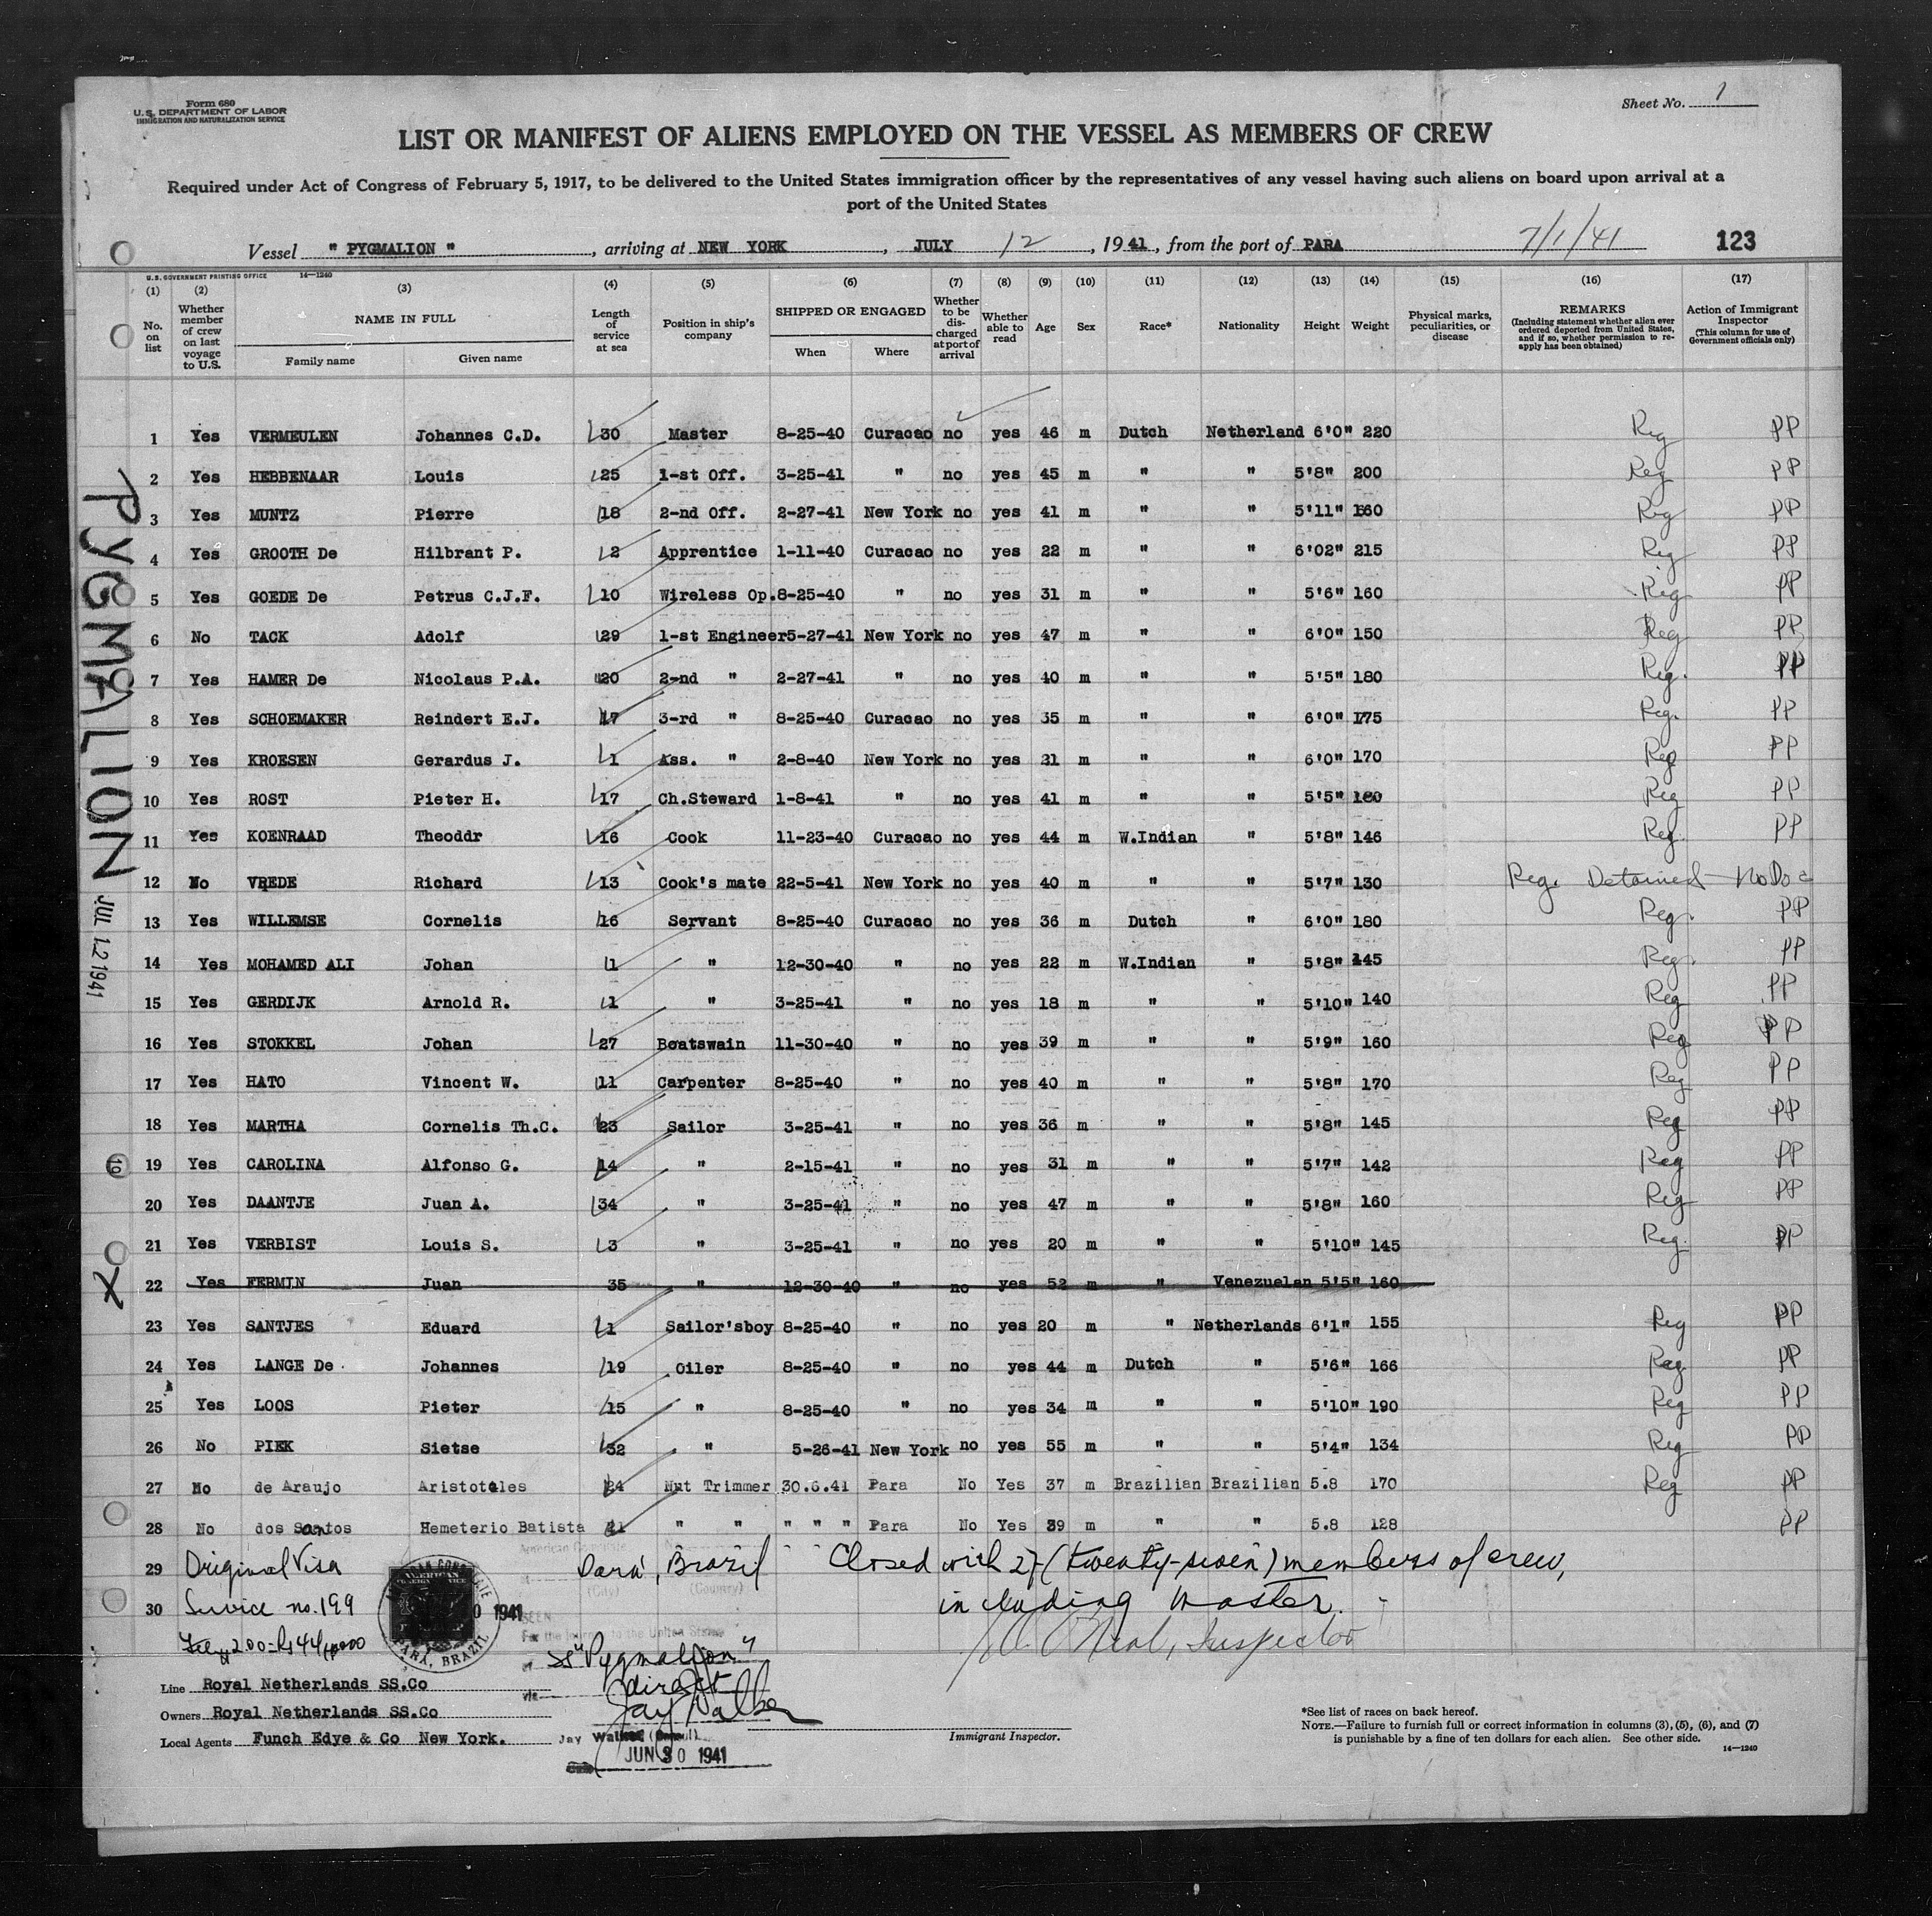 Form 680
U. S. DEPARTMENT OF LABOR
IMMIGRATION AND NATURALIZATION SERVICE
Sheet No. 1
LIST OR MANIFEST OF ALIENS EMPLOYED ON THE VESSEL AS MEMBERS OF CREW
Required under Act of Congress of February 5, 1917, to be delivered to the United States immigration officer by the representatives of any vessel having such aliens on board upon arrival at a
port of the United States
Vessel " PYGMALION ", arriving at NEW YORK, JULY 12, 1941, from the port of PARA 7/1/41 123
U. S. GOVERNMENT PRINTING OFFICE 14—1240
(1) No. on list
(2) Whether member of crew on last voyage to U.S.
(3) NAME IN FULL Family name Given name
(4) Length of service at sea
(5) Position in ship's company
(6) SHIPPED OR ENGAGED When Where
(7) Whether to be discharged at port of arrival
(8) Whether able to read
(9) Age
(10) Sex
(11) Race*
(12) Nationality
(13) Height
(14) Weight
(15) Physical marks, peculiarities, or disease
(16) REMARKS (Including statement whether alien ever ordered deported from United States, and if so, whether permission to reapply has been obtained)
(17) Action of Immigrant Inspector (This column for use of Government officials only)
1 Yes VERMEULEN Johannes C.D. 30 Master 8-25-40 Curacao no yes 46 m Dutch Netherland 6'0" 220 Reg PP
2 Yes HEBBENAAR Louis 25 1-st Off. 3-25-41 " no yes 45 m " " 5'8" 200 Reg PP
3 Yes MUNTZ Pierre 18 2-nd Off. 2-27-41 New York no yes 41 m " " 5'11" 160 Reg PP
4 Yes GROOTH De Hilbrant P. 2 Apprentice 1-11-40 Curacao no yes 22 m " " 6'02" 215 Reg PP
5 Yes GOEDE De Petrus C.J.F. 10 Wireless Op. 8-25-40 " no yes 31 m " " 5'6" 160 Reg PP
6 No TACK Adolf 29 1-st Engineer 5-27-41 New York no yes 47 m " " 6'0" 150 Reg PP
7 Yes HAMER De Nicolaus P.A. 20 2-nd " 2-27-41 " no yes 40 m " " 5'5" 180 Reg. PP
8 Yes SCHOEMAKER Reindert E.J. 17 3-rd " 8-25-40 Curacao no yes 35 m " " 6'0" 175 Reg. PP
9 Yes KROESEN Gerardus J. 1 Ass. " 2-8-40 New York no yes 21 m " " 6'0" 170 Reg PP
10 Yes ROST Pieter H. 17 Ch.Steward 1-8-41 " no yes 41 m " " 5'5" 180 Reg PP
11 Yes KOENRAAD Theoddr 16 Cook 11-23-40 Curacao no yes 44 m W.Indian " 5'8" 146 Reg. PP
12 No VREDE Richard 13 Cook's mate 22-5-41 New York no yes 40 m " " 5'7" 130 Reg. Detained - No Doc
13 Yes WILLEMSE Cornelis 16 Servant 8-25-40 Curacao no yes 36 m Dutch " 6'0" 180 Reg. PP
14 Yes MOHAMED ALI Johan 1 " 12-30-40 " no yes 22 m W.Indian " 5'8" 145 Reg. PP
15 Yes GERDIJK Arnold R. 1 " 3-25-41 " no yes 18 m " " 5'10" 140 Reg PP
16 Yes STOKKEL Johan 27 Boatswain 11-30-40 " no yes 39 m " " 5'9" 160 Reg PP
17 Yes HATO Vincent W. 11 Carpenter 8-25-40 " no yes 40 m " " 5'8" 170 Reg PP
18 Yes MARTHA Cornelis Th.C. 23 Sailor 3-25-41 " no yes 36 m " " 5'8" 145 Reg PP
19 Yes CAROLINA Alfonso G. 14 " 2-15-41 " no yes 31 m " " 5'7" 142 Reg PP
20 Yes DAANTJE Juan A. 34 " 3-25-41 " no yes 47 m " " 5'8" 160 Reg PP
21 Yes VERBIST Louis S. 3 " 3-25-41 " no yes 20 m " " 5'10" 145 Reg. PP
22 Yes FERMIN Juan 35 " 12-30-40 " no yes 52 m " Venezuelan 5'5" 160
23 Yes SANTJES Eduard 1 Sailor'sboy 8-25-40 " no yes 20 m " Netherlands 6'1" 155 Reg PP
24 Yes LANGE De Johannes 19 Oiler 8-25-40 " no yes 44 m Dutch " 5'6" 166 Reg PP
25 Yes LOOS Pieter 15 " 8-25-40 " no yes 34 m " " 5'10" 190 Reg PP
26 No PIEK Sietse 32 " 5-26-41 New York no yes 55 m " " 5'4" 134 Reg PP
27 No de Araujo Aristoteles 24 Nut Trimmer 30.6.41 Para No Yes 37 m Brazilian Brazilian 5.8 170 Reg PP
28 No dos Santos Hemeterio Batista 21 " " " " " Para No Yes 39 m " " 5.8 128 PP
29 Original Visa Pará, Brazil Closed with 27 (twenty-seven) members of crew,
30 Service no. 199 including Master.
O'Neal, Inspector
(City) (Country)
SEEN
For the journey to the United States
SS "Pygmalion"
direct
Jay Walker
PARA, BRAZIL
JUN 30 1941
Line Royal Netherlands SS.Co
Owners Royal Netherlands SS.Co
Local Agents Funch Edye & Co New York.
Immigrant Inspector.
*See list of races on back hereof.
NOTE.—Failure to furnish full or correct information in columns (3), (5), (6), and (7)
is punishable by a fine of ten dollars for each alien. See other side.
14—1240
PYGMALION
JUL 12 1941
10